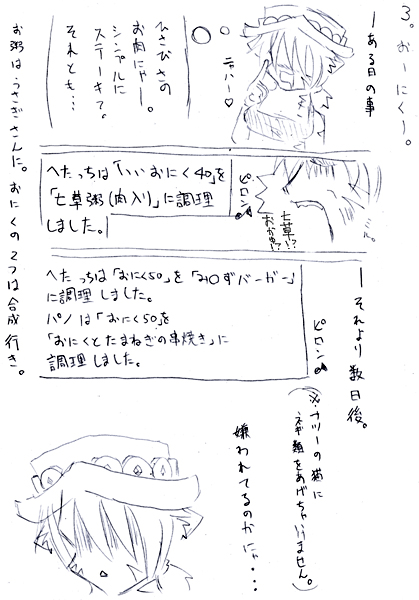 3. おーにくー。
―ある日の事
ニャハー♡
ひさびさの
お肉にゃー。
シンプルに
ステーキで。
それとも…
ミル。
七草!?
おかゆ!?
ピロン♪
へたっちは「いいおにく40」を
「七草粥(肉入り)」に調理
しました。
―それより数日後。
ピロン♪
へたっちは「おにく50」を「みOずバーガー」
に調理しました。
パノは「おにく50」を
「おにくとたまねぎの串焼き」に
調理しました。
(※ナツーの猫に
ネギ類をあげちゃいけません。)
嫌われてるのかにゃ・・・
お粥は・うさぎさんに。おにくの2つは合成行き。